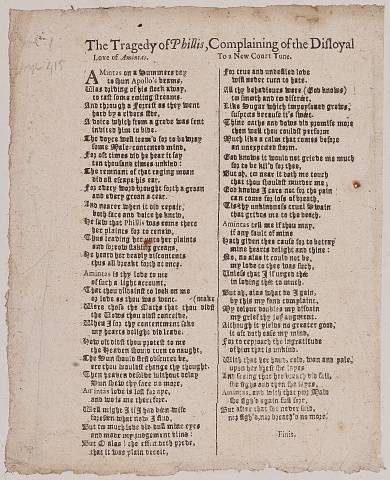 The Tragedy of Phillis, Complaining of the Disloyal
Love of Amintas. To a New Court Tune.
AMintas on a Summers day
to shun Apollo's beams,
Was driving of his flock away,
to tast some cooling streams.
And through a Forrest as they went
hard by a rivers side,
A voice which from a grove was sent
invited him to bide.
The voyce well seem'd for to bewray
some Male-contented mind,
For oft times did he hear it say
ten thousand times unkind:
The remnant of that raging moan
did all escape his ear,
For every word brought forth a groan
and every groan a tear.
And nearer when it did repair,
both face and voice he knew,
He saw that Phillis was come there
her plaints for to renew,
Thus leaving her to her plaints
and sorrow slaking groans,
He heard her deadly discontents
thus all breakt forth at once.
Amintas is thy love to me
of such a light account,
That thou disdainst to look on me
or love as thou was wont.
Were those the Oaths that thou didst (make
the Vows thou didst conceive,
When I for thy contentment sake
my hearts delight did leave.
How oft didst thou protest to me
the Heavens should turn to naught,
The Sun should first obscured be,
ere thou wouldst change thy thought.
Then heaven dissolve without delay
Sun shew thy face no more,
Amintas love is lost for aye,
and wo is me therefore.
Well might I if I had been wise
foreseen what now I find,
But to much love did fill mine eyes
and made my judgement blind:
But O alas! the effect doth prove
that it was plain deceit,
For true and undefiled love
will never turn to hate.
All thy behaviours were (God knows)
to smooth and to discreet,
Like Sugar which impoysoned grows,
suspect because it's sweet:
Thine oaths and vows did promise more
then well thou couldst perform
Much like a calm that comes before
an unexpected storm.
God knows it would not grieve me much
for to be kil'd for thee,
But oh, to near it doth me touch
that thou shouldst murder me;
God knows I care not for the pain
can come for loss of breath,
Tis thy unkindness cruel Swain
that grieves me to the death.
Amintas tell me if thou may,
if any fault of mine
Hath given thee cause for to betray
mine hearts delight and thine:
No, no alas it could not be,
my love to thee was such,
Unless that if I urged thee
in loving thee to much.
But oh, alas what do I gain,
by this my fond complaint,
My colour doubles thy disdain
my grief thy joy augment:
Although it yields no greater good,
it oft doth ease my mind,
For to reproach the ingratitude
of him that is unkind.
With that her hand, cold, wan and pale,
upon her brest she layes
And seeing that her breath did fail,
she sighs and then she sayes,
Amintas, and with that poor Maid
she sigh'd again full sore,
But after that she never said,
nor sigh'd, nor breath'd no more.
Finis.